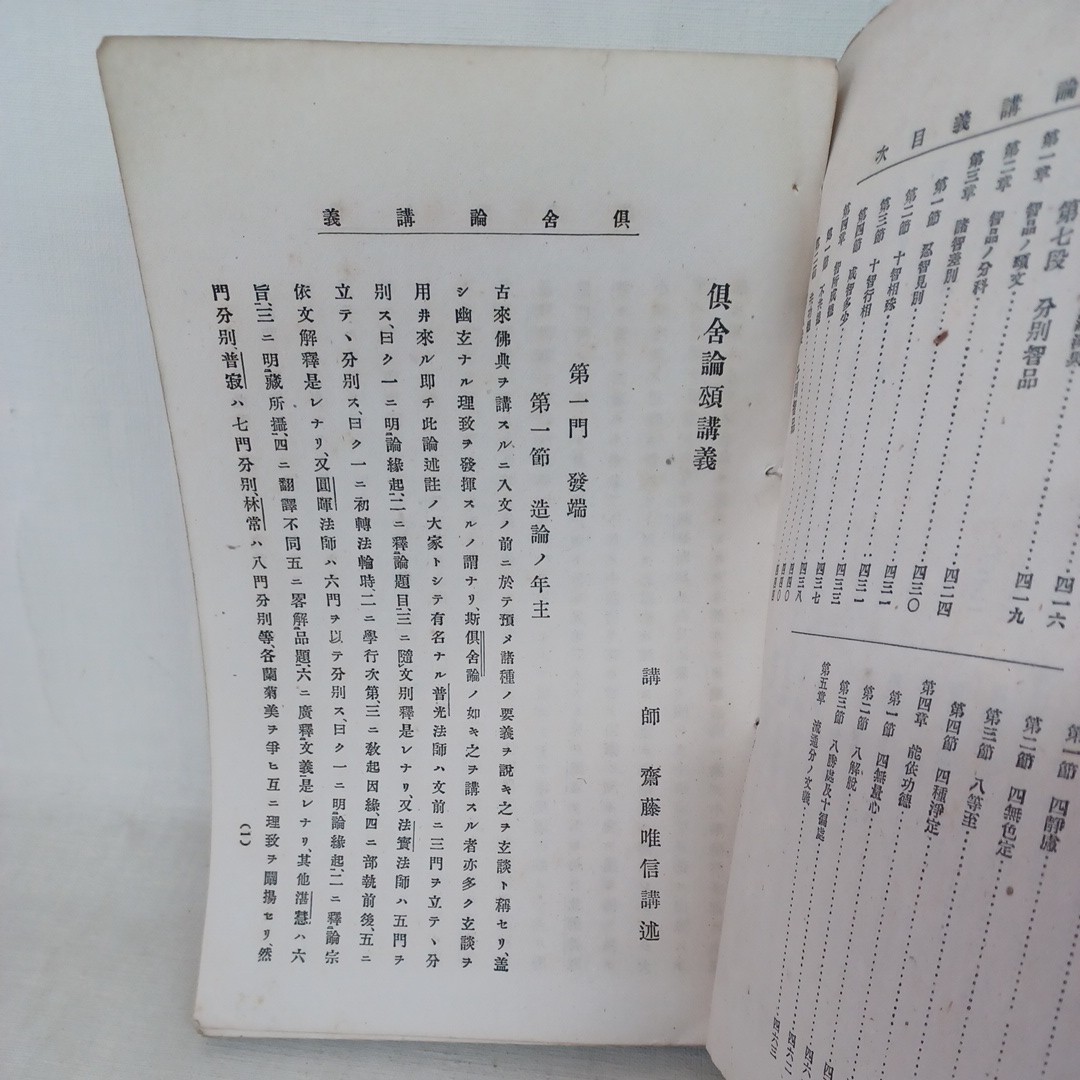 論講義目次
第七段 分別智品
四一六
第一章 智品ノ頌文
四一九
第二章 智品ノ分科
第三章 諸智差別
四二四
第一節 忍智見別
四三〇
第二節 十智相殊
四三一
第三節 十智行相
四三一
第四節 成智多少
第四章 智所成德
四三七
第一節 不共德
四三八
四四〇
第一節 四靜慮
第二節 四無色定
第三節 八等至
第四節 四種淨定
第四章 能依功德
第一節 四無量心
第二節 八解脫
第三節 八勝處及十遍處
四六二
第五章 流通分ノ文
四六三
俱舍論講義
俱舍論頌講義
講師 齋藤唯信講述
第一門 發端
第一節 造論ノ年主
古來佛典ヲ講スルニ入文ノ前ニ於テ預メ諸種ノ要義ヲ說キ之ヲ玄談ト稱セリ、蓋
シ幽玄ナル理致ヲ發揮スルノ謂ナリ、斯俱舍論ノ如キ之ヲ講スル者亦多ク玄談ヲ
用井來ル卽チ此論述註ノ大家トシテ有名ナル普光法師ハ文前ニ三門ヲ立テヽ分
別ス、曰ク一ニ明論緣起、二ニ釋論題目、三ニ隨文別釋是レナリ、又法寶法師ハ五門ヲ
立テヽ分別ス、曰ク一ニ初轉法輪時二ニ學行次第、三ニ敎起因緣、四ニ部執前後、五ニ
依文解釋是レナリ、又圓暉法師ハ六門ヲ以テ分別ス、曰ク一ニ明論緣起、二ニ釋論宗
旨、三ニ明藏所攝、四ニ翻譯不同五ニ畧解品題、六ニ廣釋文義是レナリ、其他湛慧ハ六
門分別、普寂ハ七門分別、林常ハ八門分別等、各蘭菊美ヲ爭ヒ互ニ理致ヲ闡揚セリ、然
(一)